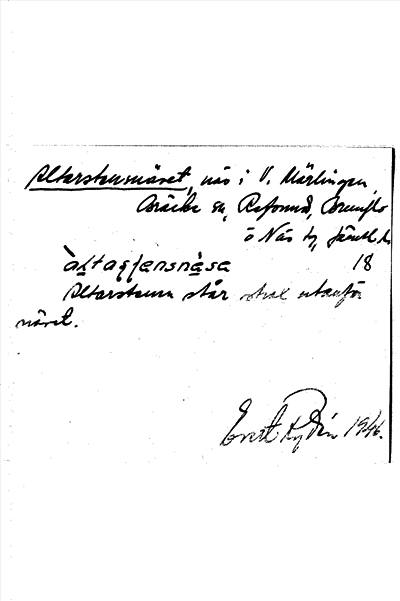 Altarstensnäset, näs i V. Märlingen,
Bräcke sn, Refsunds, Brunflo
o Näs tg, Jämtl. l.
àltastensnèse 18
Altarstenen står strax utanför
näset.
Evert Rydén 1946.